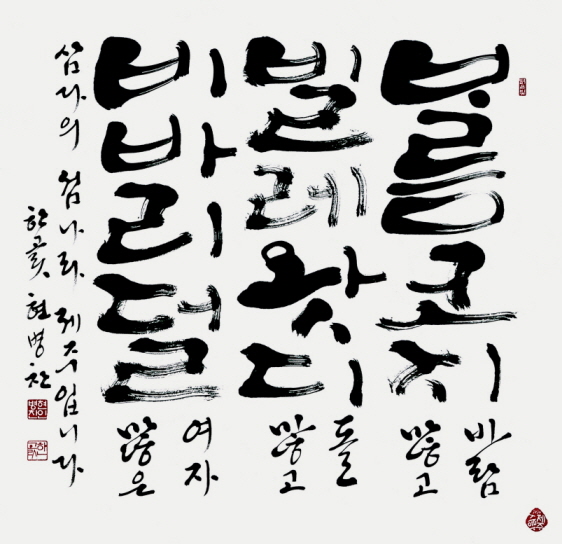 ᄇᆞ름코지
바람
많고
빌레왓디
돌
많고
비바리덜
여자
많은
삼다의 섬나라 제주입니다
한곬 현병찬